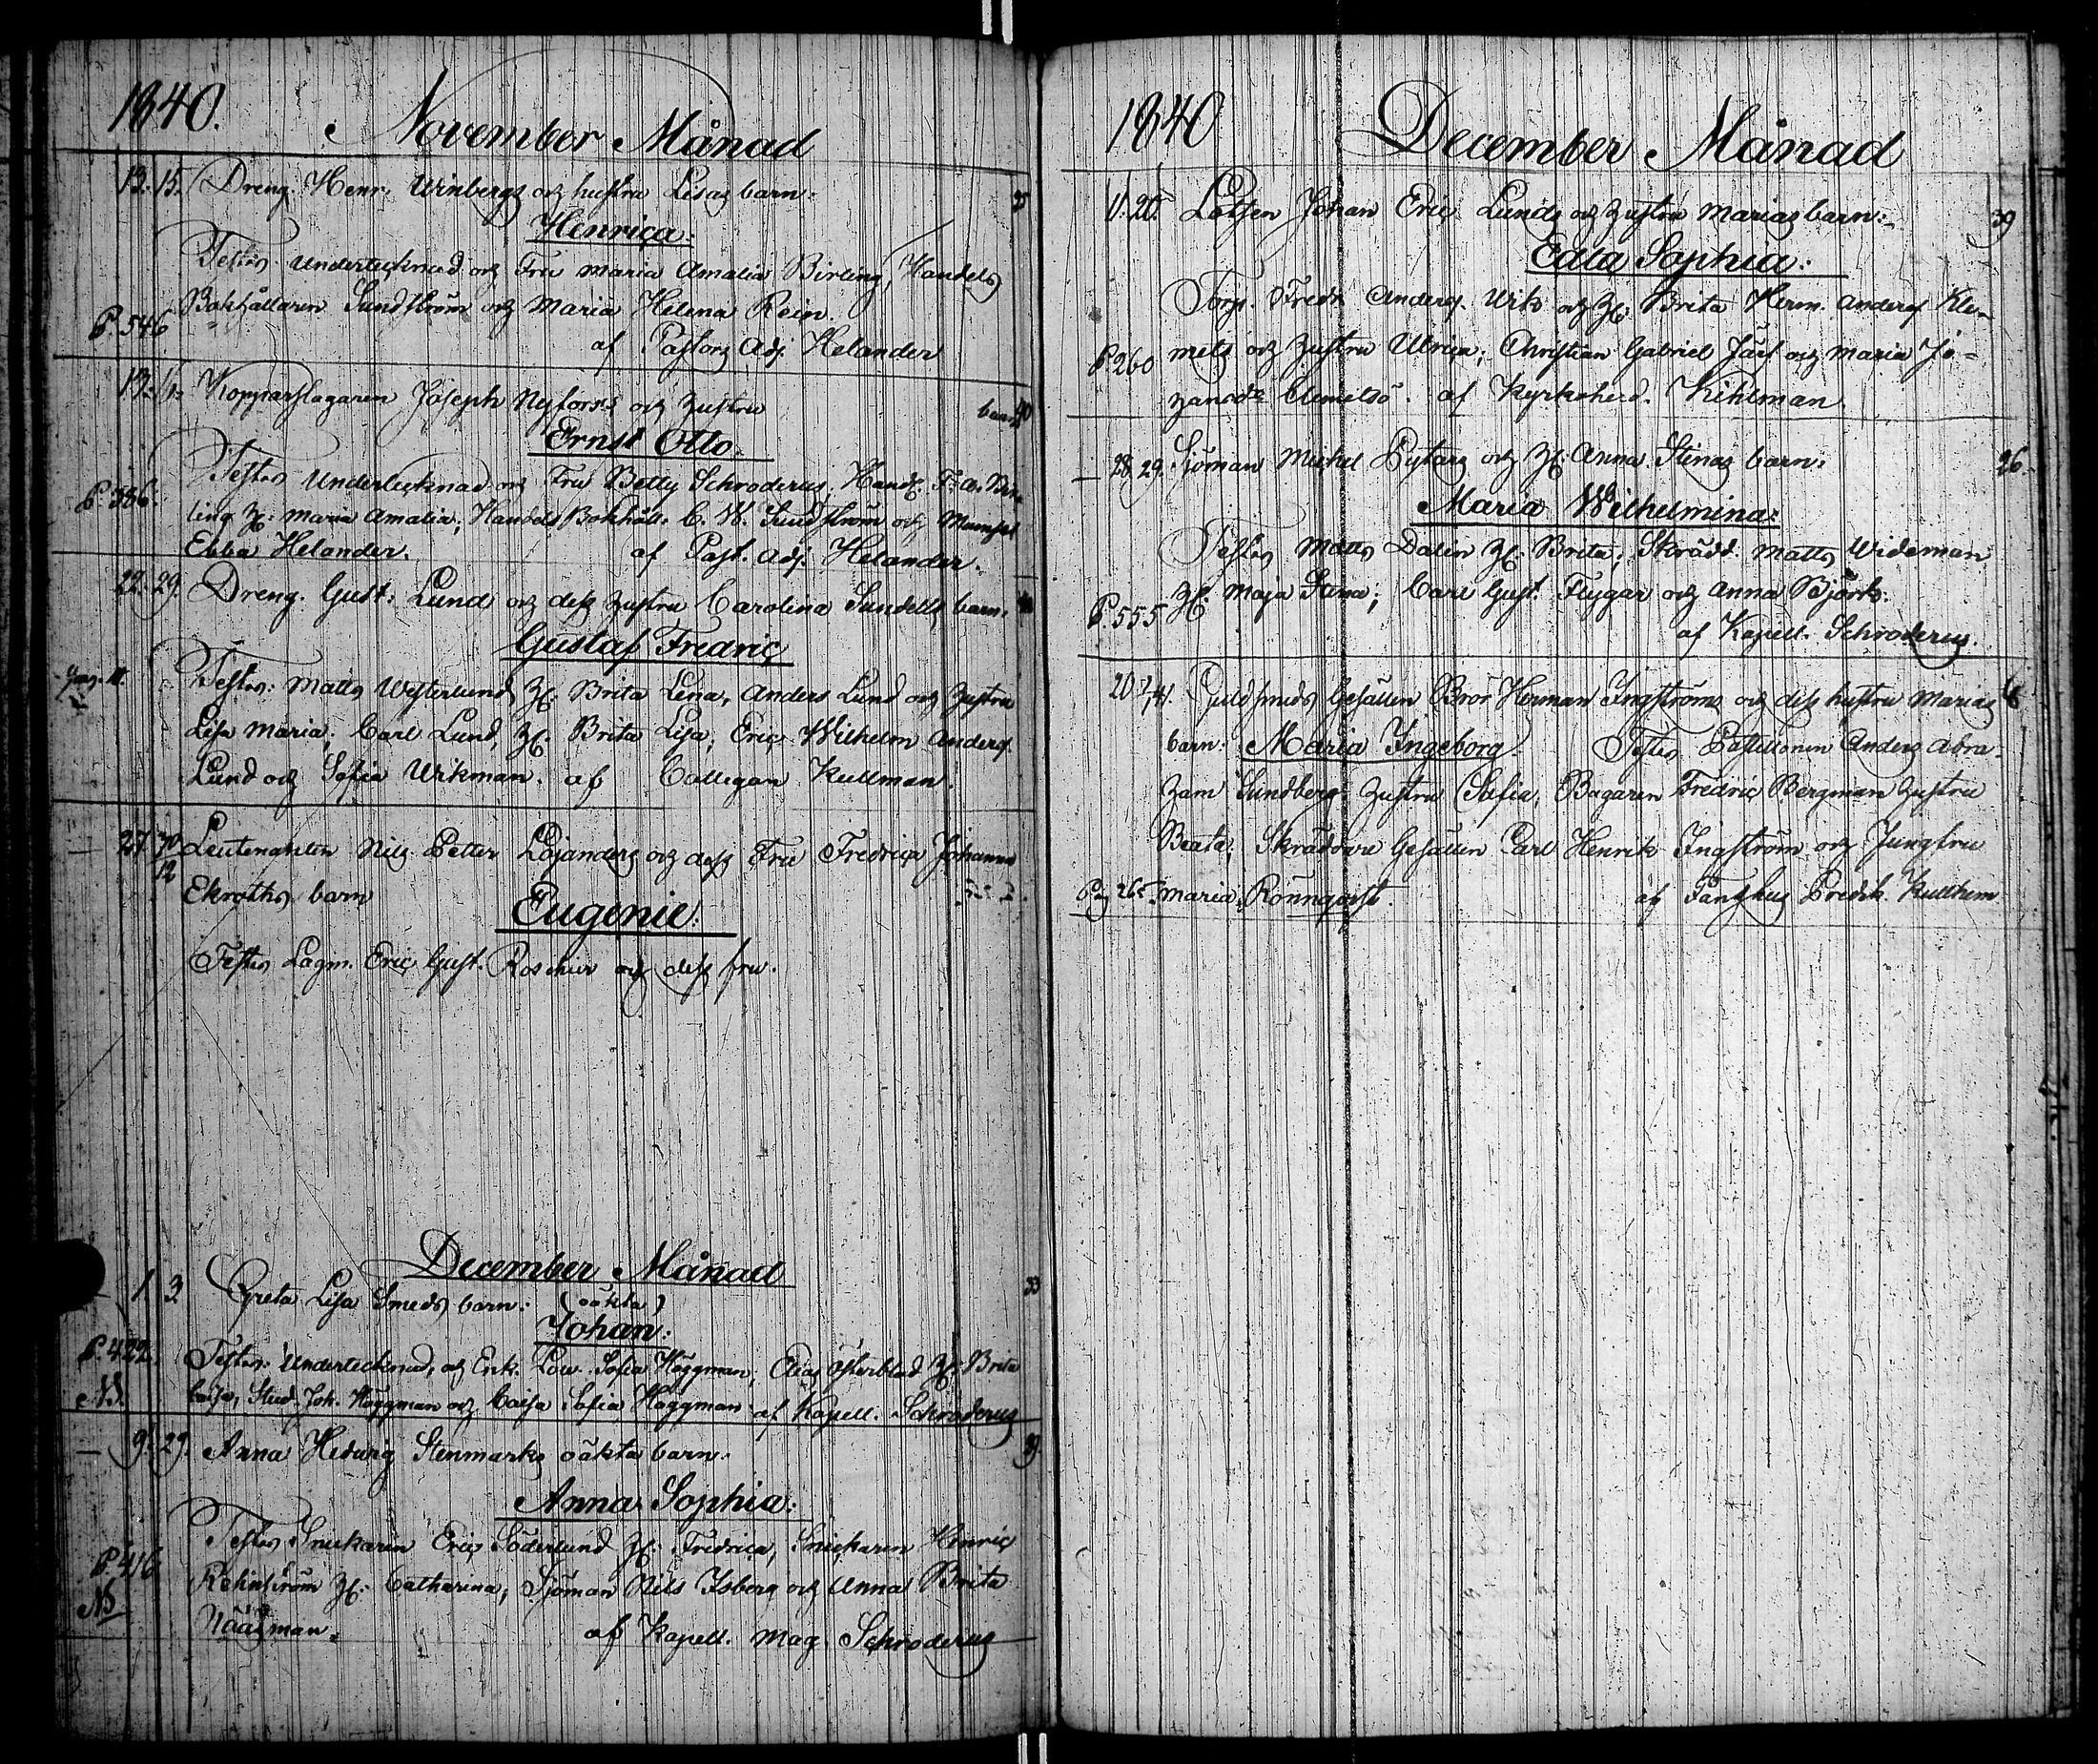 1840. November Månad
13. 15. Dreng. Henr. Winbergs och hustru Lisas barn: 35
Henrica:
Testes Undertecknad och Fru Maria Amalia Birling, Handels
Bokhållaren Sundström och Maria Helena Rein.
P. 546 af Pastors Adj. Helander
13. Kopparslagaren Joseph Nyforss och hustru barn 40
Ernst Otto.
Testes Undertecknad och Fru Betty Schroderus, Handl. F. A. Bir-
P. 586. ling hu: Maria Amalia; Handels Bokhåll. C. W. Sundström och Mamsel
Ebba Helander. af Past. Adj. Helander.
22. 29. Dreng. Gust. Lund och dess hustru Carolina Sundells barn.
Gustaf Fredric
Testes: Matts Westerlund, hu: Brita Lena, Anders Lund och hustru
Lisa Maria; Carl Lund, hu: Brita Lisa; Eric Wilhelm Anders.
Lund och Sofia Wikman. af Collegan Kullman.
27. 30/12 Leutenanten Nils Petter Lojanders och dess Fru Fredrica Johanna
Ekroths barn
Eugenie:
Testes Lagm. Eric Gust. Roschier och dess fru.
December Månad
1. 3. Greta Lisa Smeds barn: (oäkta) 33
Johan:
P. 422. Testes: Undertecknad, och Enk. Lov. Sofia Häggman, Elias Österblad hu: Brita
NB. Caisa, Stud. Joh. Häggman och Caisa Sofia Häggman af Kapell. Schroderus
9. 29. Anna Hedwig Stenmarks oäkta barn. 39.
Anna Sophia:
Testes Snickaren Eric Söderlund hu: Fredrica, Snickaren Henric
P. 416 Rehnström hu: Catharina; Sjöman Nils Isberg och Anna Brita
NB Nääsman. af Kapell. Mag. Schroderus
1840 December Månad
11. 20. Lotsen Johan Eric Lunds och hustru Marias barn: 39
Edla Sophia:
Torp. Fredr. Anders. Wik och hu: Brita Herm. Anders. Kle-
P 260 mets och hustru Ulrica; Christian Gabriel Järf och Maria Jo-
hansdr Clemetsö. af Kyrkoherd. Kihlman.
28. 29. Sjöman Michel Pytars och hu: Anna Stinas barn: 26.
Maria Wilhelmina:
Testes Matts Dalin hu: Brita; Skrädd. Matts Wideman
P. 555 hu: Maja Stina; Carl Gust. Flygar och Anna Björk.
af Kapell. Schroderus.
20. 1/41. Guldsmeds Gesällen Bror Herman Ingströms och dess hustru Marias
barn: Maria Ingeborg. Testes Postillonen Anders Abra-
ham Sundberg hustru Sofia; Bagaren Fredric Bergman hustru
Beata; Skräddare Gesällen Carl Henrik Ingström och Jungfru
Maria Rönnqvist. af Fånghus Predik. Kullhem